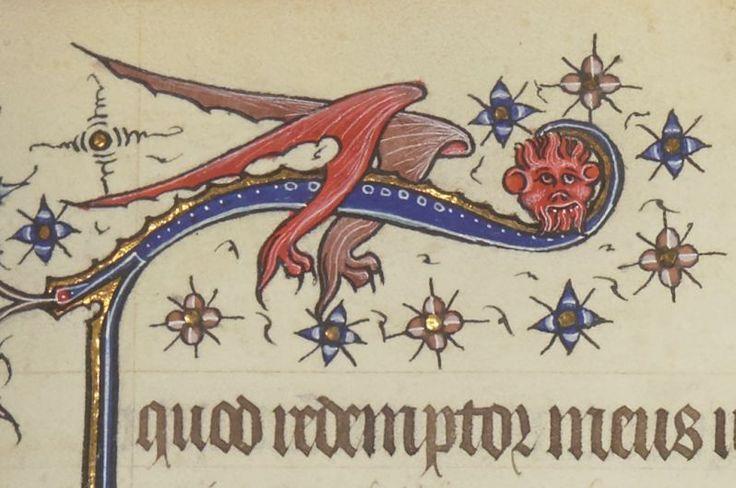 quod redemptor meus